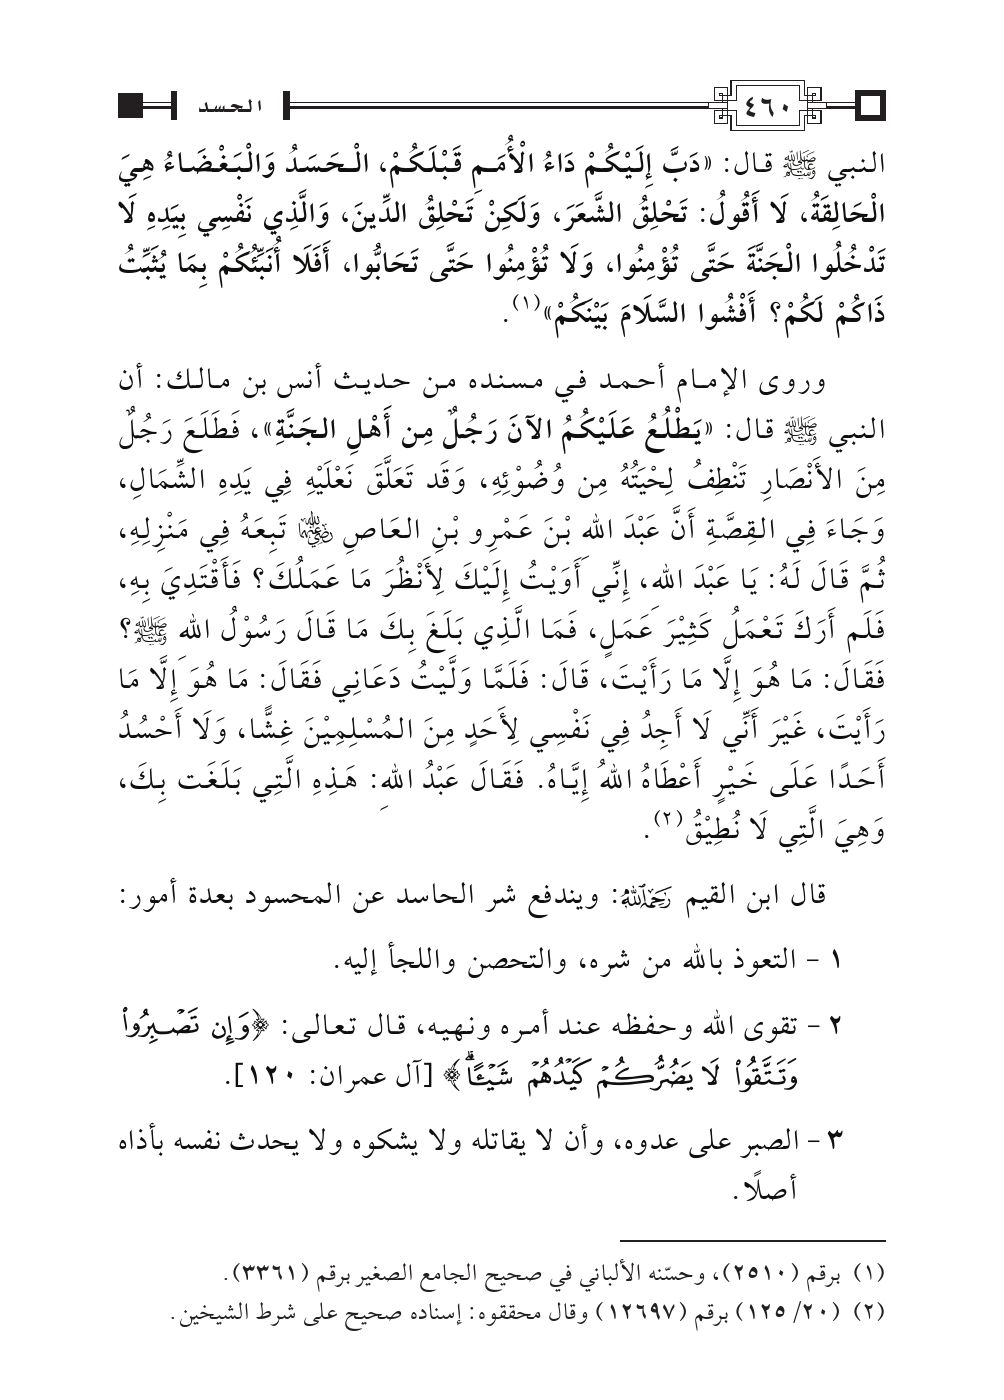 ٤٦٠
الحسد
النبي ﷺ قال: «دَبَّ إِلَيْكُمْ دَاءُ الْأُمَمِ قَبْلَكُمْ، الْحَسَدُ وَالْبَغْضَاءُ هِيَ
الْحَالِقَةُ، لَا أَقُولُ: تَحْلِقُ الشَّعَرَ، وَلَكِنْ تَحْلِقُ الدِّينَ، وَالَّذِي نَفْسِي بِيَدِهِ لَا
تَدْخُلُوا الْجَنَّةَ حَتَّى تُؤْمِنُوا، وَلَا تُؤْمِنُوا حَتَّى تَحَابُّوا، أَفَلَا أُنَبِّئُكُمْ بِمَا يُثَبِّتُ
ذَاكُمْ لَكُمْ؟ أَفْشُوا السَّلَامَ بَيْنَكُمْ»(١).
وروى الإمام أحمد في مسنده من حديث أنس بن مالك: أن
النبي ﷺ قال: «يَطْلُعُ عَلَيْكُمُ الآنَ رَجُلٌ مِن أَهْلِ الجَنَّةِ»، فَطَلَعَ رَجُلٌ
مِنَ الأَنْصَارِ تَنْطِفُ لِحْيَتُهُ مِن وُضُوْئِهِ، وَقَد تَعَلَّقَ نَعْلَيْهِ فِي يَدِهِ الشِّمَالِ،
وَجَاءَ فِي القِصَّةِ أَنَّ عَبْدَ الله بْنَ عَمْرِو بْنِ العَاصِ رضي الله عنه تَبِعَهُ فِي مَنْزِلِهِ،
ثُمَّ قَالَ لَهُ: يَا عَبْدَ اللهِ، إِنِّي أَوَيْتُ إِلَيْكَ لِأَنْظُرَ مَا عَمَلُكَ؟ فَأَقْتَدِيَ بِهِ،
فَلَم أَرَكَ تَعْمَلُ كَثِيْرَ عَمَلٍ، فَمَا الَّذِي بَلَغَ بِكَ مَا قَالَ رَسُوْلُ اللهِ ﷺ؟
فَقَالَ: مَا هُوَ إِلَّا مَا رَأَيْتَ، قَالَ: فَلَمَّا وَلَّيْتُ دَعَانِي فَقَالَ: مَا هُوَ إِلَّا مَا
رَأَيْتَ، غَيْرَ أَنِّي لَا أَجِدُ فِي نَفْسِي لِأَحَدٍ مِنَ المُسْلِمِيْنَ غِشًّا، وَلَا أَحْسُدُ
أَحَدًا عَلَى خَيْرٍ أَعْطَاهُ اللهُ إِيَّاهُ. فَقَالَ عَبْدُ اللهِ: هَذِهِ الَّتِي بَلَغَت بِكَ،
وَهِيَ الَّتِي لَا نُطِيْقُ(٢).
قال ابن القيم رحمه الله: ويندفع شر الحاسد عن المحسود بعدة أمور:
١ - التعوذ بالله من شره، والتحصن واللجأ إليه.
٢ - تقوى الله وحفظه عند أمره ونهيه، قال تعالى: ﴿وَإِن تَصۡبِرُواْ
وَتَتَّقُواْ لَا يَضُرُّكُمۡ كَيۡدُهُمۡ شَيۡـًٔاۗ﴾ [آل عمران: ١٢٠].
٣ - الصبر على عدوه، وأن لا يقاتله ولا يشكوه ولا يحدث نفسه بأذاه
أصلًا.
(١) برقم (٢٥١٠)، وحسّنه الألباني في صحيح الجامع الصغير برقم (٣٣٦١).
(٢) (٢٠/ ١٢٥) برقم (١٢٦٩٧) وقال محققوه: إسناده صحيح على شرط الشيخين.